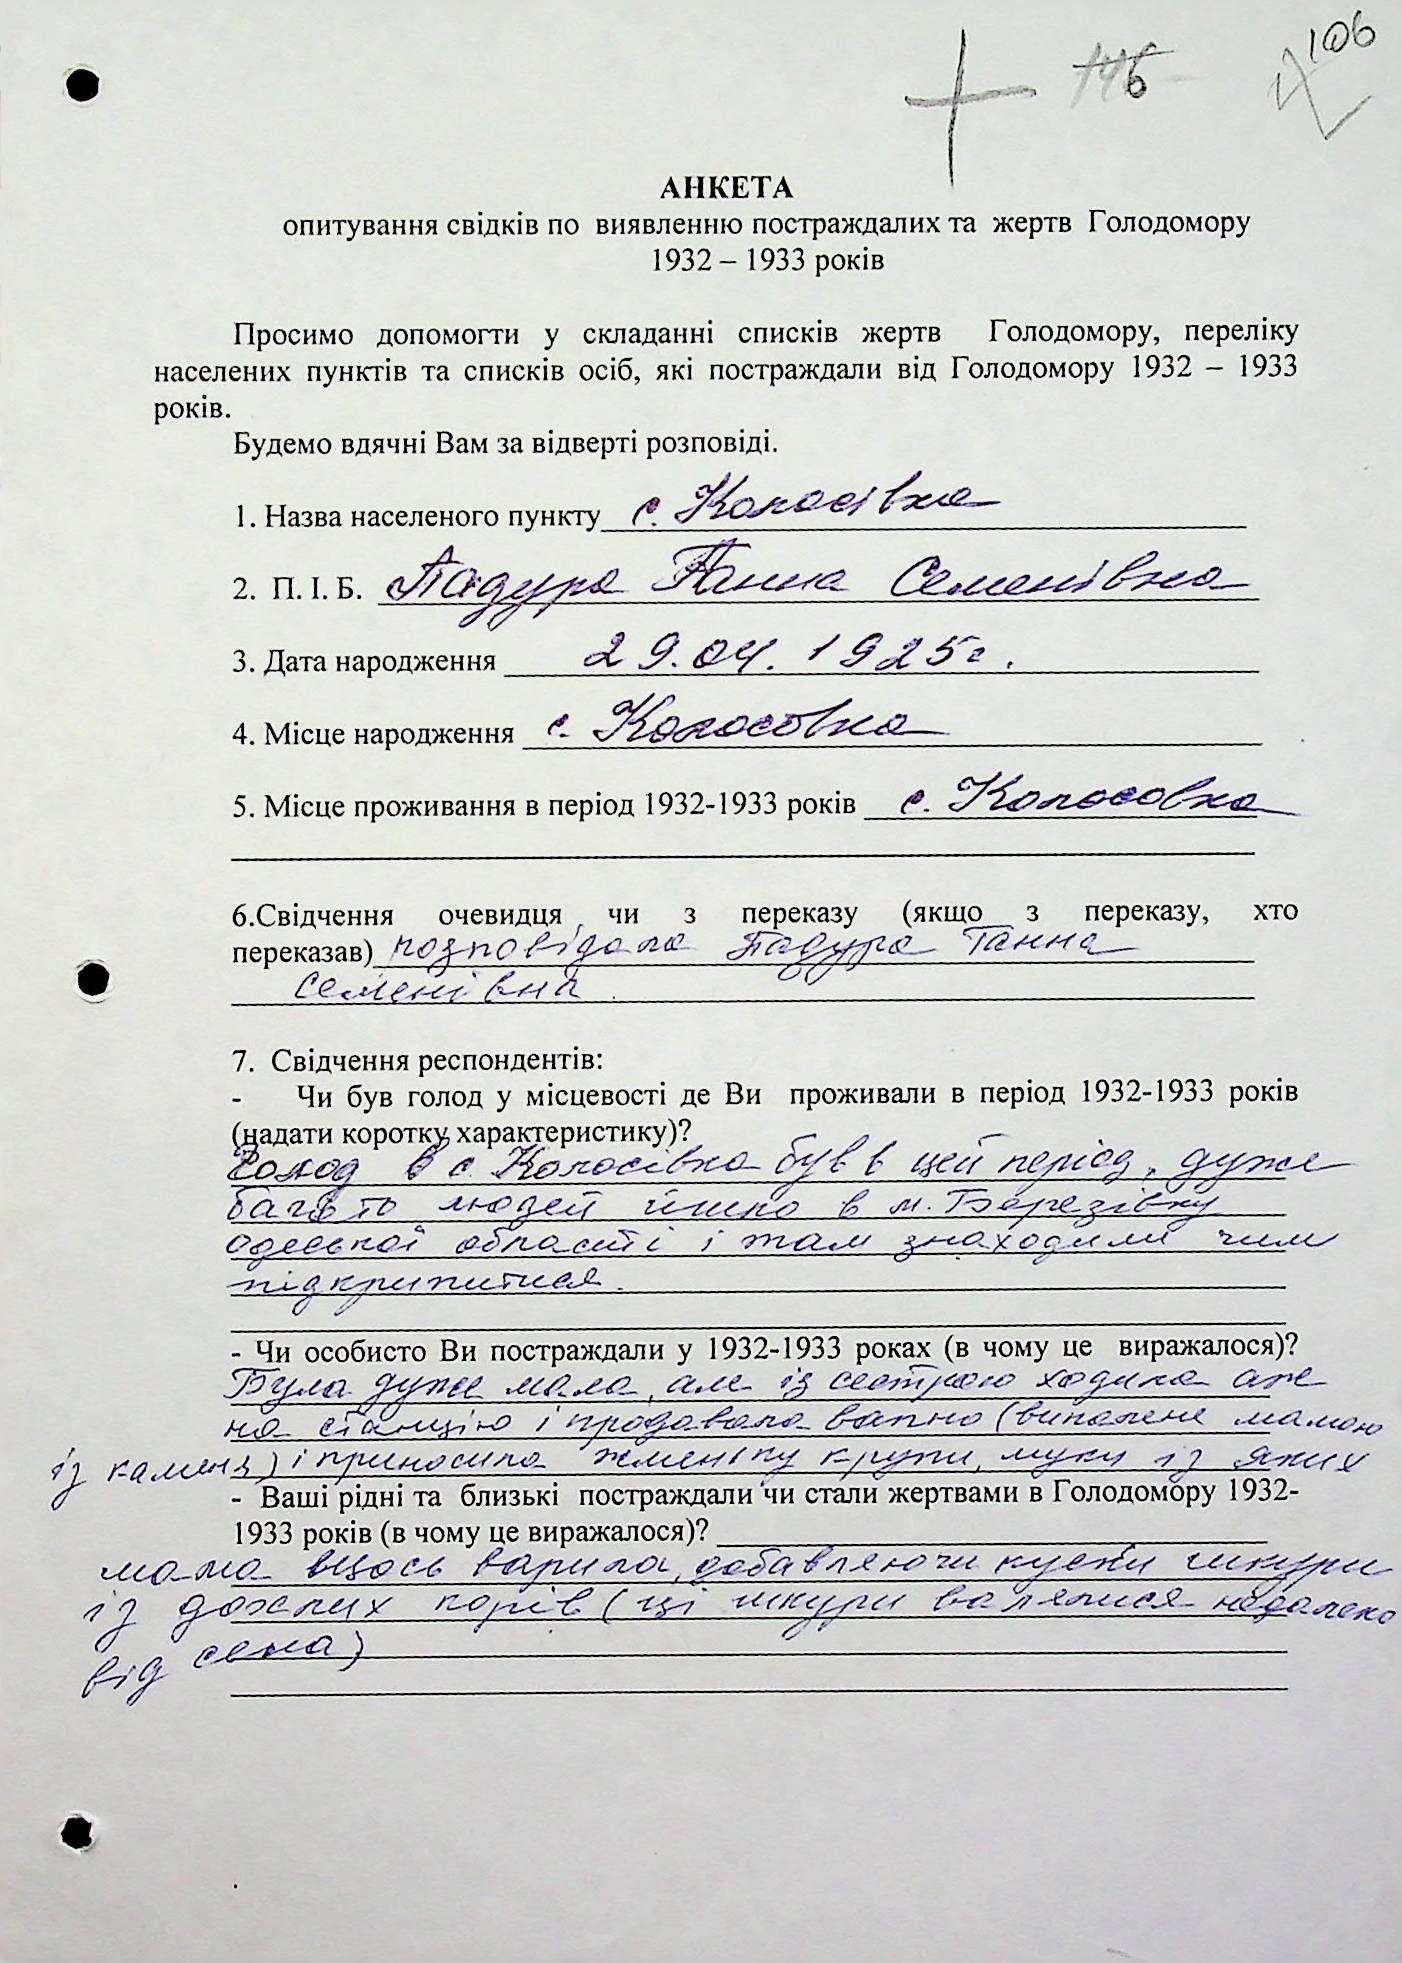 106
146
АНКЕТА
опитування свідків по виявленню постраждалих та жертв Голодомору
1932 – 1933 років
Просимо допомогти у складанні списків жертв Голодомору, переліку
населених пунктів та списків осіб, які постраждали від Голодомору 1932 – 1933
років.
Будемо вдячні Вам за відверті розповіді.
1. Назва населеного пункту с. Колосівка
2. П. І. Б. Падура Ганна Семенівна
3. Дата народження 29.04.1925г.
4. Місце народження с. Колосовка
5. Місце проживання в період 1932-1933 років с. Колосовка
6.Свідчення очевидця чи з переказу (якщо з переказу, хто
переказав) розповідала Падура Ганна
Семенівна.
7. Свідчення респондентів:
- Чи був голод у місцевості де Ви проживали в період 1932-1933 років
(надати коротку характеристику)?
Голод в с. Колосівка був в цей період, дуже
багато людей йшло в м. Березівку
Одеської області і там знаходили чим
підкрипитися.
- Чи особисто Ви постраждали у 1932-1933 роках (в чому це виражалося)?
Була дуже мала, але із сестрою ходила аж
на станцію і продавала вапно (випалене мамою
із каменя) і приносила жменьку крупи, муки із яких
- Ваші рідні та близькі постраждали чи стали жертвами в Голодомору 1932-
1933 років (в чому це виражалося)?
мама щось варила, добавляючи куски шкури
із дохлих корів (ці шкури валялися недалеко
від села)